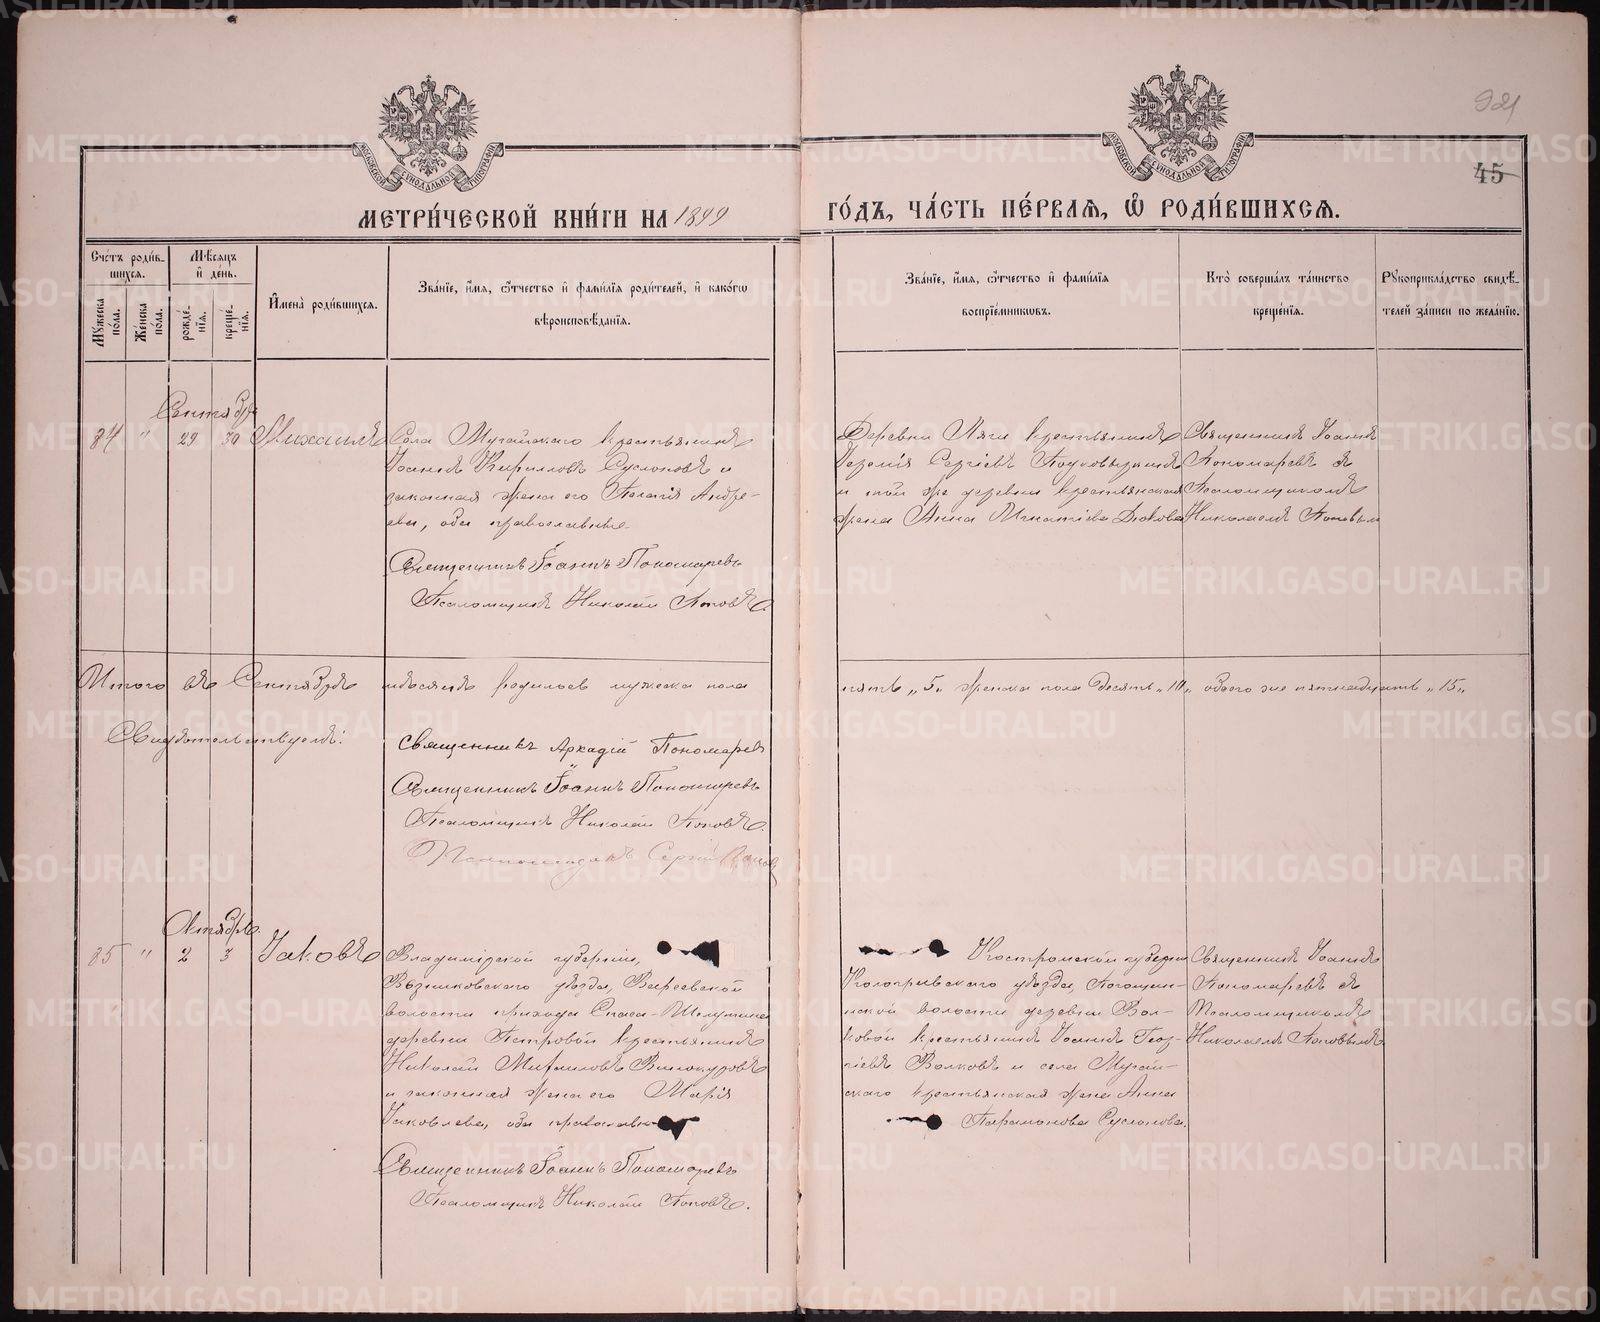 921
45
МЕТРИ́ЧЕСКОЙ КНИ́ГИ НА 1899 ГО́ДЪ, ЧА́СТЬ ПЕ́РВАЯ, Ѡ РОДИ́ВШИХСЯ.
МОСКОВСКОЙ СѴНОДАЛЬНОЙ ТИПОГРАФІИ
МОСКОВСКОЙ СѴНОДАЛЬНОЙ ТИПОГРАФІИ
Сче́тъ роди́в-
шихся.
Мꙋжеска по́ла.
Же́нска по́ла.
Мѣ́сяцъ
и҆ де́нь.
рожде́-
нїя.
креще́-
нїя.
И҆мена̀ роди́вшихся.
Зва́нїе, и҆́мя, ѻ҆́тчество и҆ фами́лїя роди́телей, и҆ како́гѡ
вѣроисповѣ́данїя.
Зва́нїе, и҆́мя, ѻ҆́тчество и҆ фами́лїя
воспрїе́мникѡвъ.
Кто̀ соверша́лъ та́инство
креще́нїя.
Рꙋкоприкла́дство свидѣ́-
телей за́писи по жела́нїю.
Сентябрь
84 " 29 30 Михаилъ
Села Мугайскаго крестьянинъ
Іоаннъ Кирилловъ Суслоновъ и
законная жена его Пелагія Андре-
ева, оба православные
Священникъ Іоаннъ Пономаревъ
Псаломщикъ Николай Поповъ.
Деревни Ляги крестьянинъ
Сергіевъ
и той же деревни крестьянская
жена Анна Игнатіева
Священникъ Іоаннъ
Пономаревъ съ
Псаломщикомъ
Николаемъ Поповымъ
Итого въ Сентябрѣ мѣсяцѣ родилось мужеска пола пять „5„ женска пола десять „10„ обоего же пятнадцать „15„
Свидѣтельствуемъ:
Священникъ Аркадій Пономаревъ
Священникъ Іоаннъ Пономаревъ
Псаломщикъ Николай Поповъ.
Псаломщикъ Сергій Поповъ
Октябрь.
85 " 2 3 Іаковъ
Владимірской губерніи,
Вязниковскаго уѣзда,
волости прихода Спаса-
деревни Петровой крестьянинъ
Николай Михаиловъ Винокуровъ
и законная жена его Марія
Іаковлева, оба православн
Священникъ Іоаннъ Пономаревъ
Псаломщикъ Николай Поповъ.
Костромской губерніи
Кологривскаго уѣзда,
волости деревни Вол-
ковой крестьянинъ Іоаннъ Геор-
гіевъ Волковъ и села Мугай-
скаго крестьянская жена Анна
Парамонова Суслонова.
Священникъ Іоаннъ
Пономаревъ съ
Псаломщикомъ
Николаемъ Поповымъ.
METRIKI.GASO-URAL.RU